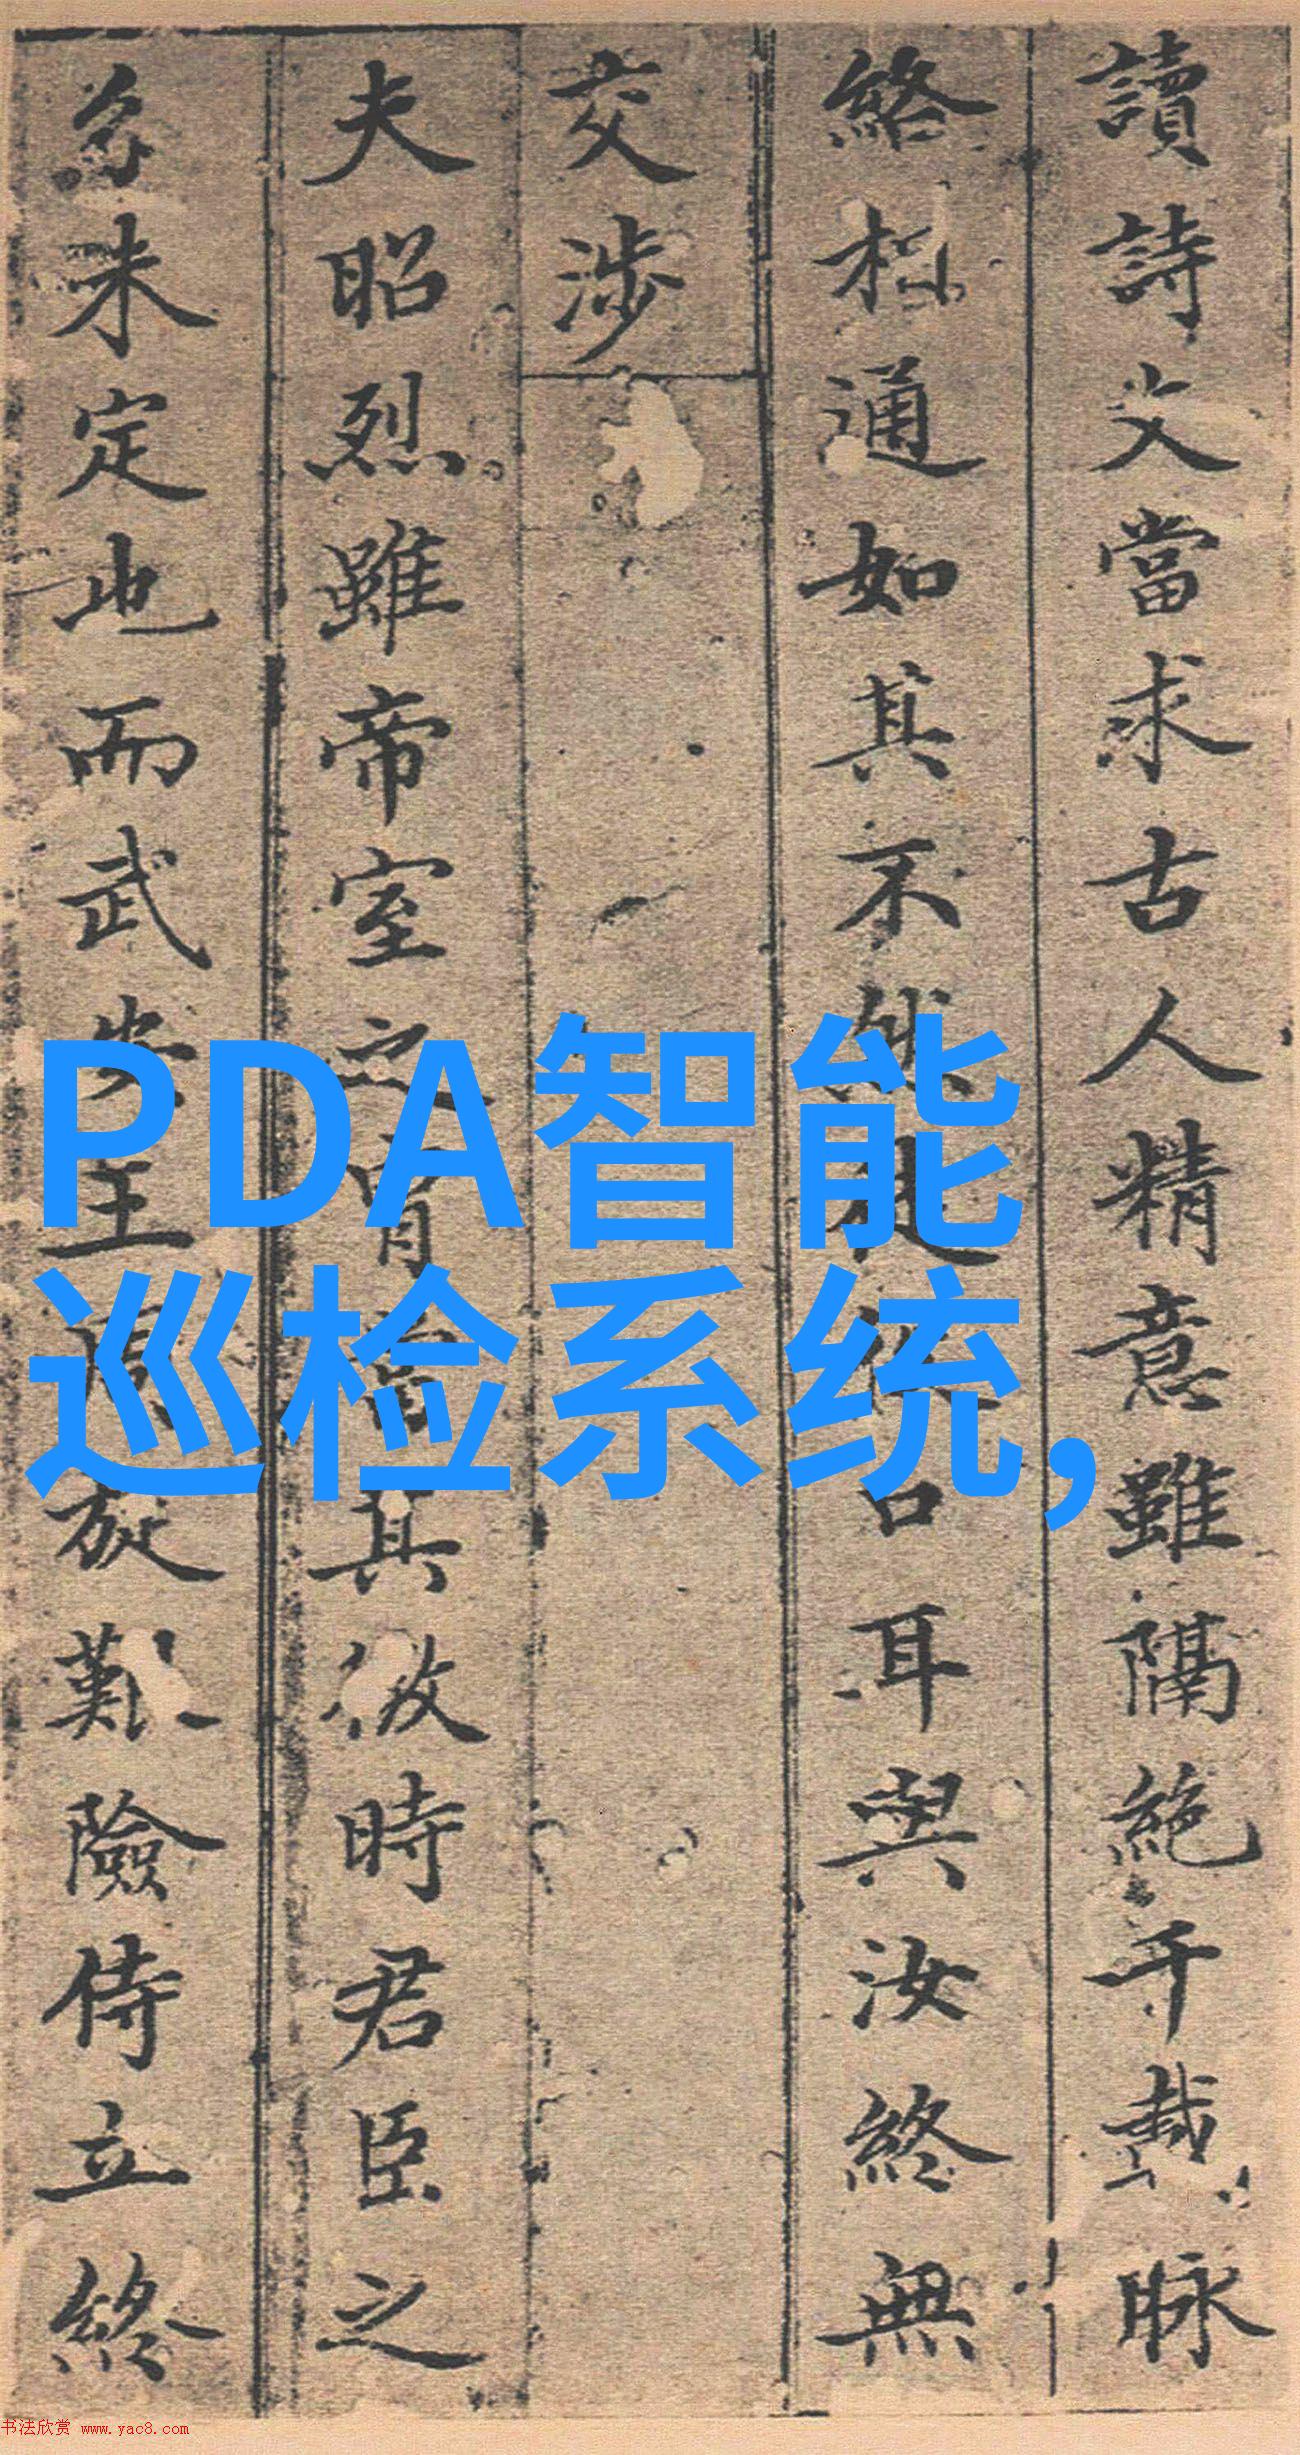 讀詩文當求古人精意雖隔絶千載脉
絡相通如其不然口耳與汝終無
交涉
夫昭烈雖帝室之胄其微時君臣之
未定也而武安王周旋艱險侍立終
PDA智能
巡检系统,
书法欣赏 www.yac8.com